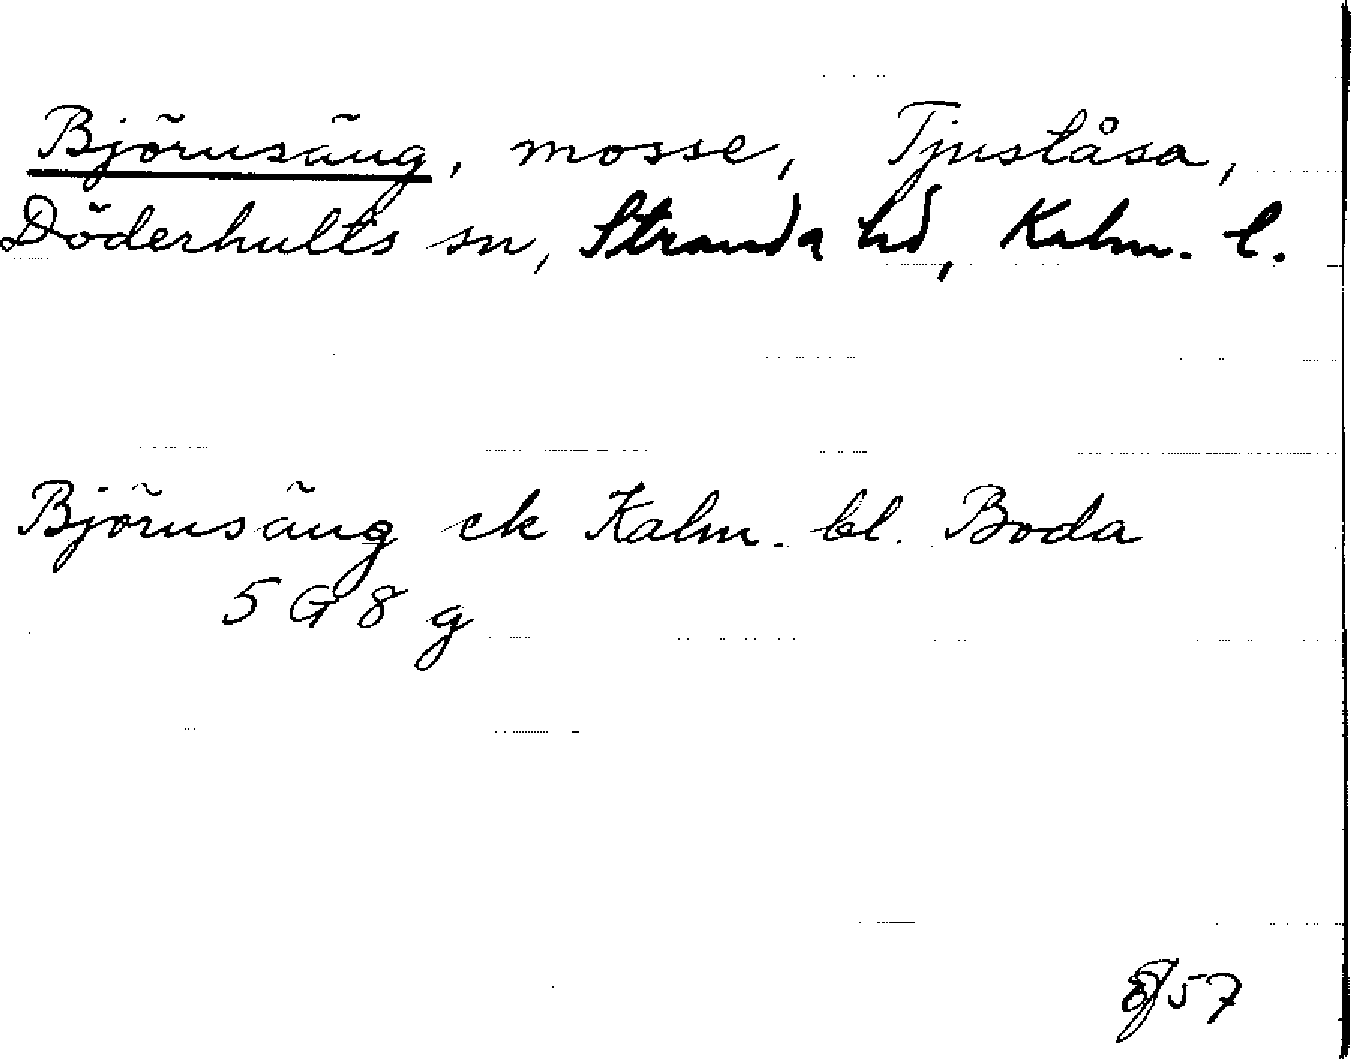 Björnsäng, mosse, Tjuståsa,
Döderhults sn, Stranda hd, Kalm. l.
Björnsäng ek Kalm. bl. Boda
5 G 8 g
57